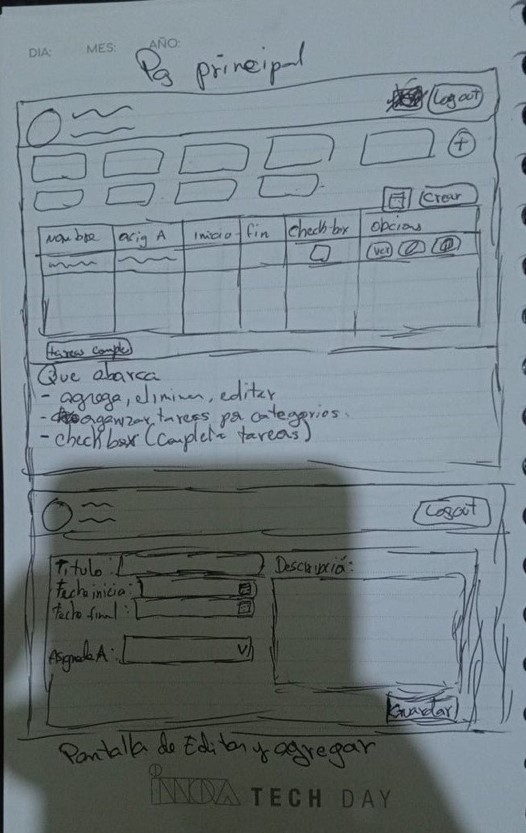 DIA: MES: AÑO:
Pag principal
Logout
+
Crear
Nombre asig A inicio fin check box opcions
ver
tareas comple
Que abarca
- agrega, eliminen, editar
- organizar tareas por categorias.
- check box (completa tareas)
Logout
Titulo: Descripció:
Fecha inicia:
Fecha final:
Asignada A:
Guardar
Pantalla de Editar y agregar
INNOVA TECH DAY